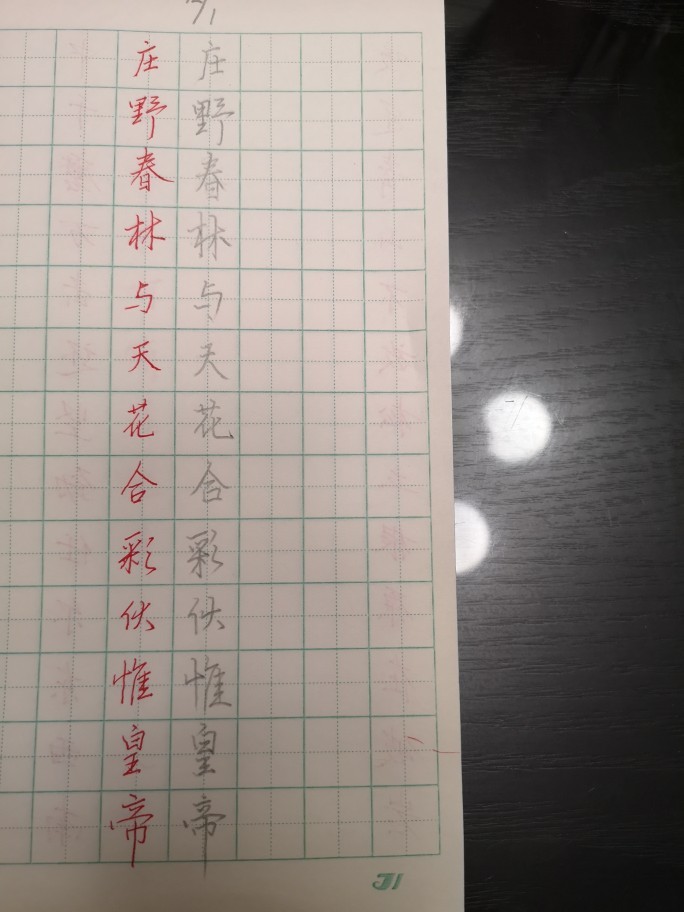 庄野春林与天花合彩伙惟皇帝
庄野春林与天花合彩伙惟皇帝